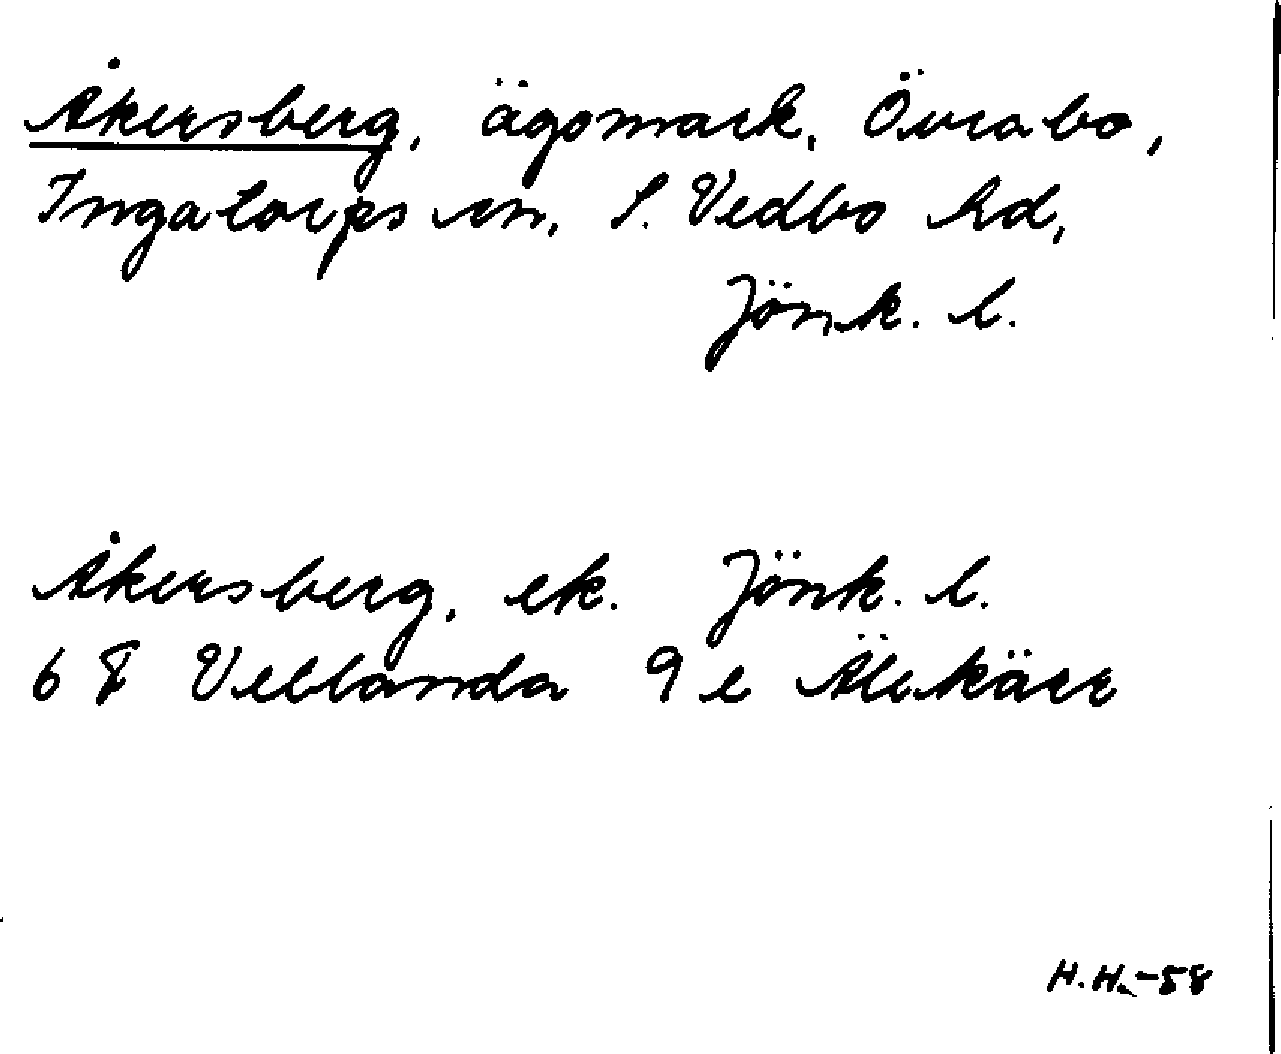 Åkersberg, ägomark, Övrabo,
Ingatorps sn, S. Vedbo hd,
Jönk. l.
Åkersberg, ek. Jönk. l.
6 F Vetlanda 9 e Älekärr
H.H. -58